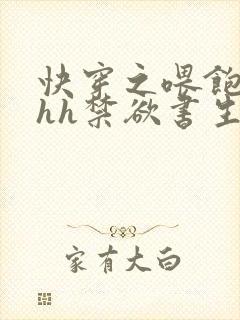 快穿之喂飽
hh禁欲書生
家有大白